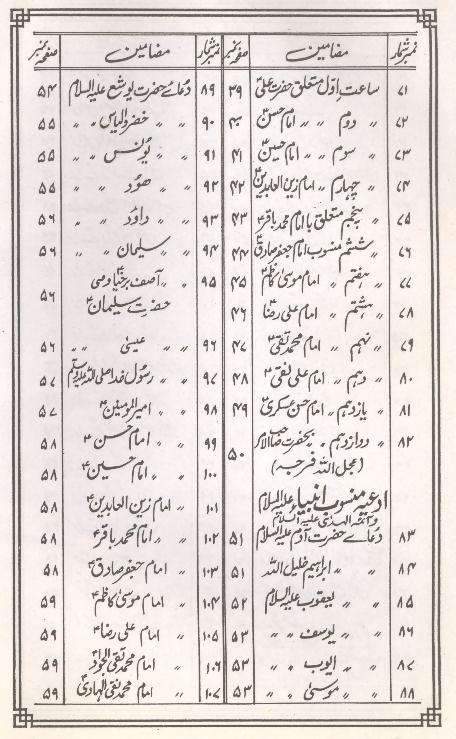 نمبر شمار مضامین صفحہ نمبر
۷۱ ساعت اوّل متعلق حضرت علیؑ ۳۹
۷۲〃 دوم 〃 〃 امام حسنؑ ۴۰
۷۳ 〃 سوم 〃 〃 امام حسینؑ ۴۱
۷۴ 〃 چہارم 〃 امام زین العابدینؑ ۴۲
۷۵ 〃 پنجم متعلق با امام محمد باقرؑ ۴۳
۷۶ 〃 ششم منسوب امام جعفر صادقؑ ۴۴
۷۷ 〃 ہفتم 〃 امام موسیٰ کاظمؑ ۴۵
۷۸ 〃 ہشتم 〃 امام علی رضاؑ ۴۶
۷۹ 〃 نہم 〃 امام محمد تقیؑ ۴۷
۸۰ 〃 دہم 〃 امام علی نقیؑ ۴۸
۸۱ 〃 یازدہم 〃 امام حسن عسکریؑ ۴۹
۸۲ 〃 دوازدہم 〃 بحضرت صاحب الامر ۵۰
(عجل اللہ فرجہ)
ادعیہ منسوب انبیاءؑ علیہ السلام
و آئمۃ الہدیٰ علیہ السلام
۸۳ دعائے حضرت آدم علیہ السلام ۵۱
۸۴ 〃 〃 ابراہیم خلیل اللہ ۵۱
۸۵ 〃 〃 یعقوب علیہ السلام ۵۲
۸۶ 〃 〃 یوسف 〃 〃 ۵۳
۸۷ 〃 〃 ایوب 〃 〃 ۵۳
۸۸ 〃 〃 موسیٰ 〃 〃 ۵۳
نمبر شمار مضامین صفحہ نمبر
۸۹ دعائے حضرت یوشع علیہ السلام ۵۴
۹۰ 〃 〃 خضر و الیاس 〃 〃 ۵۵
۹۱ 〃 〃 یونس 〃 〃 ۵۵
۹۲ 〃 〃 ھود 〃 〃 ۵۵
۹۳ 〃 〃 داؤد 〃 〃 ۵۶
۹۴ 〃 〃 سلیمان 〃 〃 ۵۶
۹۵ 〃 〃 آصف برخیاؑ وصی
حضرت سلیمانؑ ۵۶
۹۶ 〃 〃 عیسیٰ 〃 〃 ۵۶
۹۷ 〃 〃 رسول خدا صلی اللہ علیہ وآلہ وسلم ۵۷
۹۸ 〃 〃 امیر المومنینؑ ۵۷
۹۹ 〃 〃 امام حسنؑ ۵۸
۱۰۰ 〃 〃 امام حسینؑ ۵۸
۱۰۱ 〃 امام زین العابدینؑ ۵۸
۱۰۲ 〃 〃 امام محمد باقرؑ ۵۸
۱۰۳ 〃 امام جعفر صادقؑ ۵۸
۱۰۴ 〃 امام موسیٰ کاظمؑ ۵۹
۱۰۵ 〃 امام علی رضاؑ ۵۹
۱۰۶ 〃 امام محمد تقی الجوادؑ ۵۹
۱۰۷ 〃 امام محمد نقی الہادیؑ ۵۹